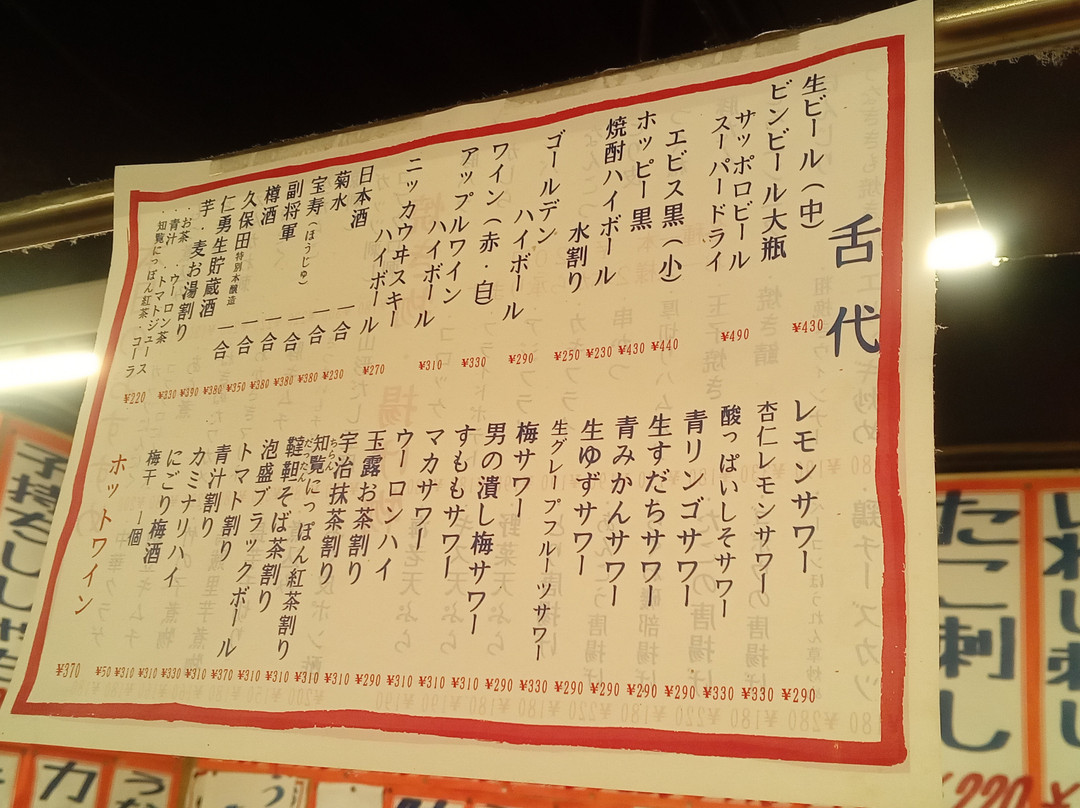 舌代
生ビール(中) ¥430
ビンビール大瓶
サッポロビール ¥490
スーパードライ
エビス黒(小) ¥440
ホッピー黒 ¥430
焼酎ハイボール ¥230
水割り ¥250
ゴールデン
ハイボール ¥290
ワイン(赤・白) ¥330
アップルワイン
ハイボール ¥310
ニッカウヰスキー
ハイボール ¥270
日本酒
菊水 一合 ¥230
宝寿(ほうじゅ) 一合 ¥380
副将軍 一合 ¥380
樽酒 一合 ¥380
久保田特別本醸造 一合 ¥350
仁勇生貯蔵酒 一合 ¥380
芋・麦お湯割り ¥390
お茶 ¥330
青汁・ウーロン茶
知覧にっぽん紅茶・コーラ ¥220
・トマトジュース
レモンサワー ¥290
杏仁レモンサワー ¥330
酸っぱいしそサワー ¥330
青リンゴサワー ¥290
生すだちサワー ¥290
青みかんサワー ¥290
生ゆずサワー ¥290
生グレープフルーツサワー ¥330
梅サワー ¥290
男の潰し梅サワー ¥310
すももサワー ¥310
マカサワー ¥310
ウーロンハイ ¥290
玉露お茶割り ¥310
宇治抹茶割り ¥310
知覧にっぽん紅茶割り ¥310
ちらん
韃靼そば茶割り ¥310
だったん
泡盛ブラックボール ¥370
トマト割り ¥310
青汁割り ¥330
カミナリハイ ¥310
にごり梅酒 ¥310
梅干 一個 ¥50
ホットワイン ¥370
たこ刺し
¥220